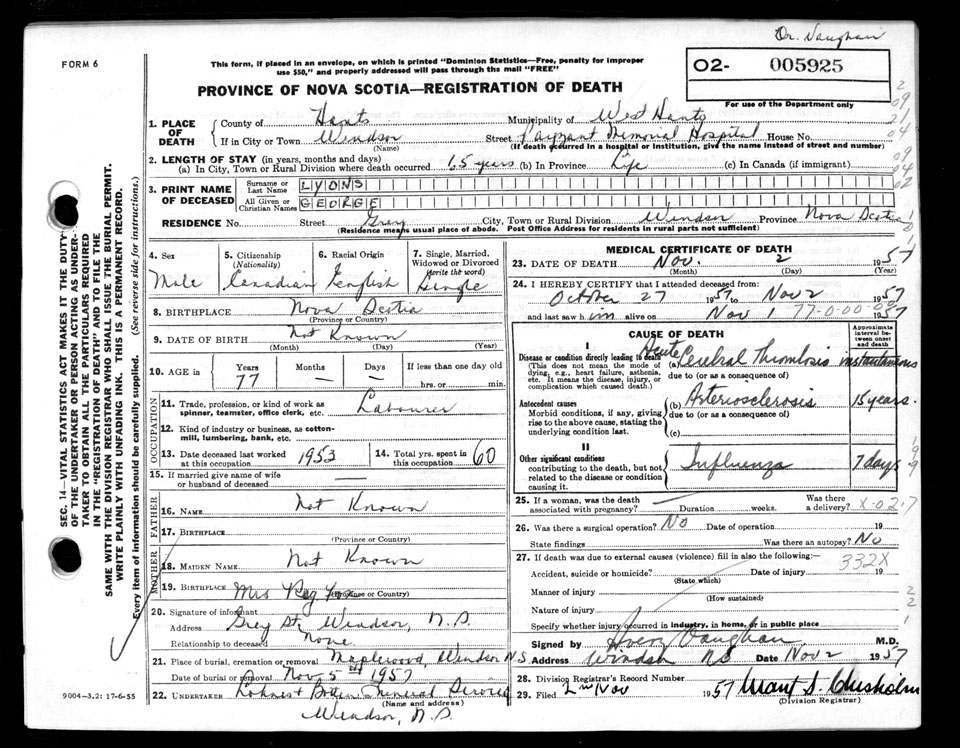 Dr. Vaughan
FORM 6
This form, if placed in an envelope, on which is printed "Dominion Statistics—Free, penalty for improper
use $50," and properly addressed will pass through the mail "FREE"
02- 005925
For use of the Department only
PROVINCE OF NOVA SCOTIA—REGISTRATION OF DEATH
1. PLACE OF DEATH
County of Hants Municipality of West Hants
If in City or Town Windsor Street Payzant Memorial Hospital House No.
(Name) (If death occurred in a hospital or institution, give the name instead of street and number)
2. LENGTH OF STAY (in years, months and days)
(a) In City, Town or Rural Division where death occurred 65 years (b) In Province Life (c) In Canada (if immigrant)
3. PRINT NAME OF DECEASED
Surname or Last Name LYONS
All Given or Christian Names GEORGE
RESIDENCE No. Street Grey City, Town or Rural Division Windsor Province Nova Scotia
(Residence means usual place of abode. Post Office Address for residents in rural parts not sufficient)
4. Sex Male
5. Citizenship (Nationality) Canadian
6. Racial Origin English
7. Single, Married, Widowed or Divorced (write the word) Single
8. BIRTHPLACE Nova Scotia
(Province or Country)
9. DATE OF BIRTH Not Known
(Month) (Day) (Year)
10. AGE in Years 77 Months — Days — If less than one day old
hrs. or min.
OCCUPATION
11. Trade, profession, or kind of work as spinner, teamster, office clerk, etc. Labourer
12. Kind of industry or business, as cotton-mill, lumbering, bank, etc.
13. Date deceased last worked at this occupation 1953
14. Total yrs. spent in this occupation 60
15. If married give name of wife or husband of deceased —
FATHER
16. NAME Not Known
17. BIRTHPLACE
(Province or Country)
MOTHER
18. MAIDEN NAME Not Known
19. BIRTHPLACE
(Province or Country)
20. Signature of informant Mrs Reg Fox
Address Grey St, Windsor, N.S.
Relationship to deceased None
21. Place of burial, cremation or removal Maplewood, Windsor N.S.
Date of burial or removal Nov 5 1957
22. UNDERTAKER Funeral Service
(Name and address)
Windsor, N.S.
MEDICAL CERTIFICATE OF DEATH
23. DATE OF DEATH Nov. 2 1957
(Month) (Day) (Year)
24. I HEREBY CERTIFY that I attended deceased from:
October 27 1957 to Nov 2 1957
and last saw him alive on Nov 1 1957
77-0.00-00
CAUSE OF DEATH
Approximate interval between onset and death
I
Disease or condition directly leading to death (a) Acute Cerebral Thrombosis instantaneous
(This does not mean the mode of dying, e.g., heart failure, asthenia, etc. It means the disease, injury, or complication which caused death.)
due to (or as a consequence of)
Antecedent causes (b) Arteriosclerosis 15 years.
Morbid conditions, if any, giving rise to the above cause, stating the underlying condition last.
due to (or as a consequence of)
(c)
II
Other significant conditions Influenza 7 days
contributing to the death, but not related to the disease or condition causing it.
25. If a woman, was the death associated with pregnancy? — Duration weeks. Was there a delivery? X-02.7
26. Was there a surgical operation? No Date of operation 19
State findings Was there an autopsy? No
27. If death was due to external causes (violence) fill in also the following:—
332X
Accident, suicide or homicide? Date of injury 19
(State which)
Manner of injury
(How sustained)
Nature of injury
Specify whether injury occurred in industry, in home, or in public place
Signed by Vaughan M.D.
Address Windsor NS Date Nov 2 1957
28. Division Registrar's Record Number
29. Filed 2nd Nov 1957 Grant S. Chisholm
(Division Registrar)
9004-3.2: 17-6-55
SEC. 14—VITAL STATISTICS ACT MAKES IT THE DUTY
OF THE UNDERTAKER OR PERSON ACTING AS UNDERTAKER
TO OBTAIN ALL THE PARTICULARS REQUIRED
IN THE "REGISTRATION OF DEATH" AND TO FILE THE
SAME WITH THE DIVISION REGISTRAR WHO SHALL ISSUE THE BURIAL PERMIT.
WRITE PLAINLY WITH UNFADING INK. THIS IS A PERMANENT RECORD.
Every item of information should be carefully supplied. (See reverse side for instructions.)